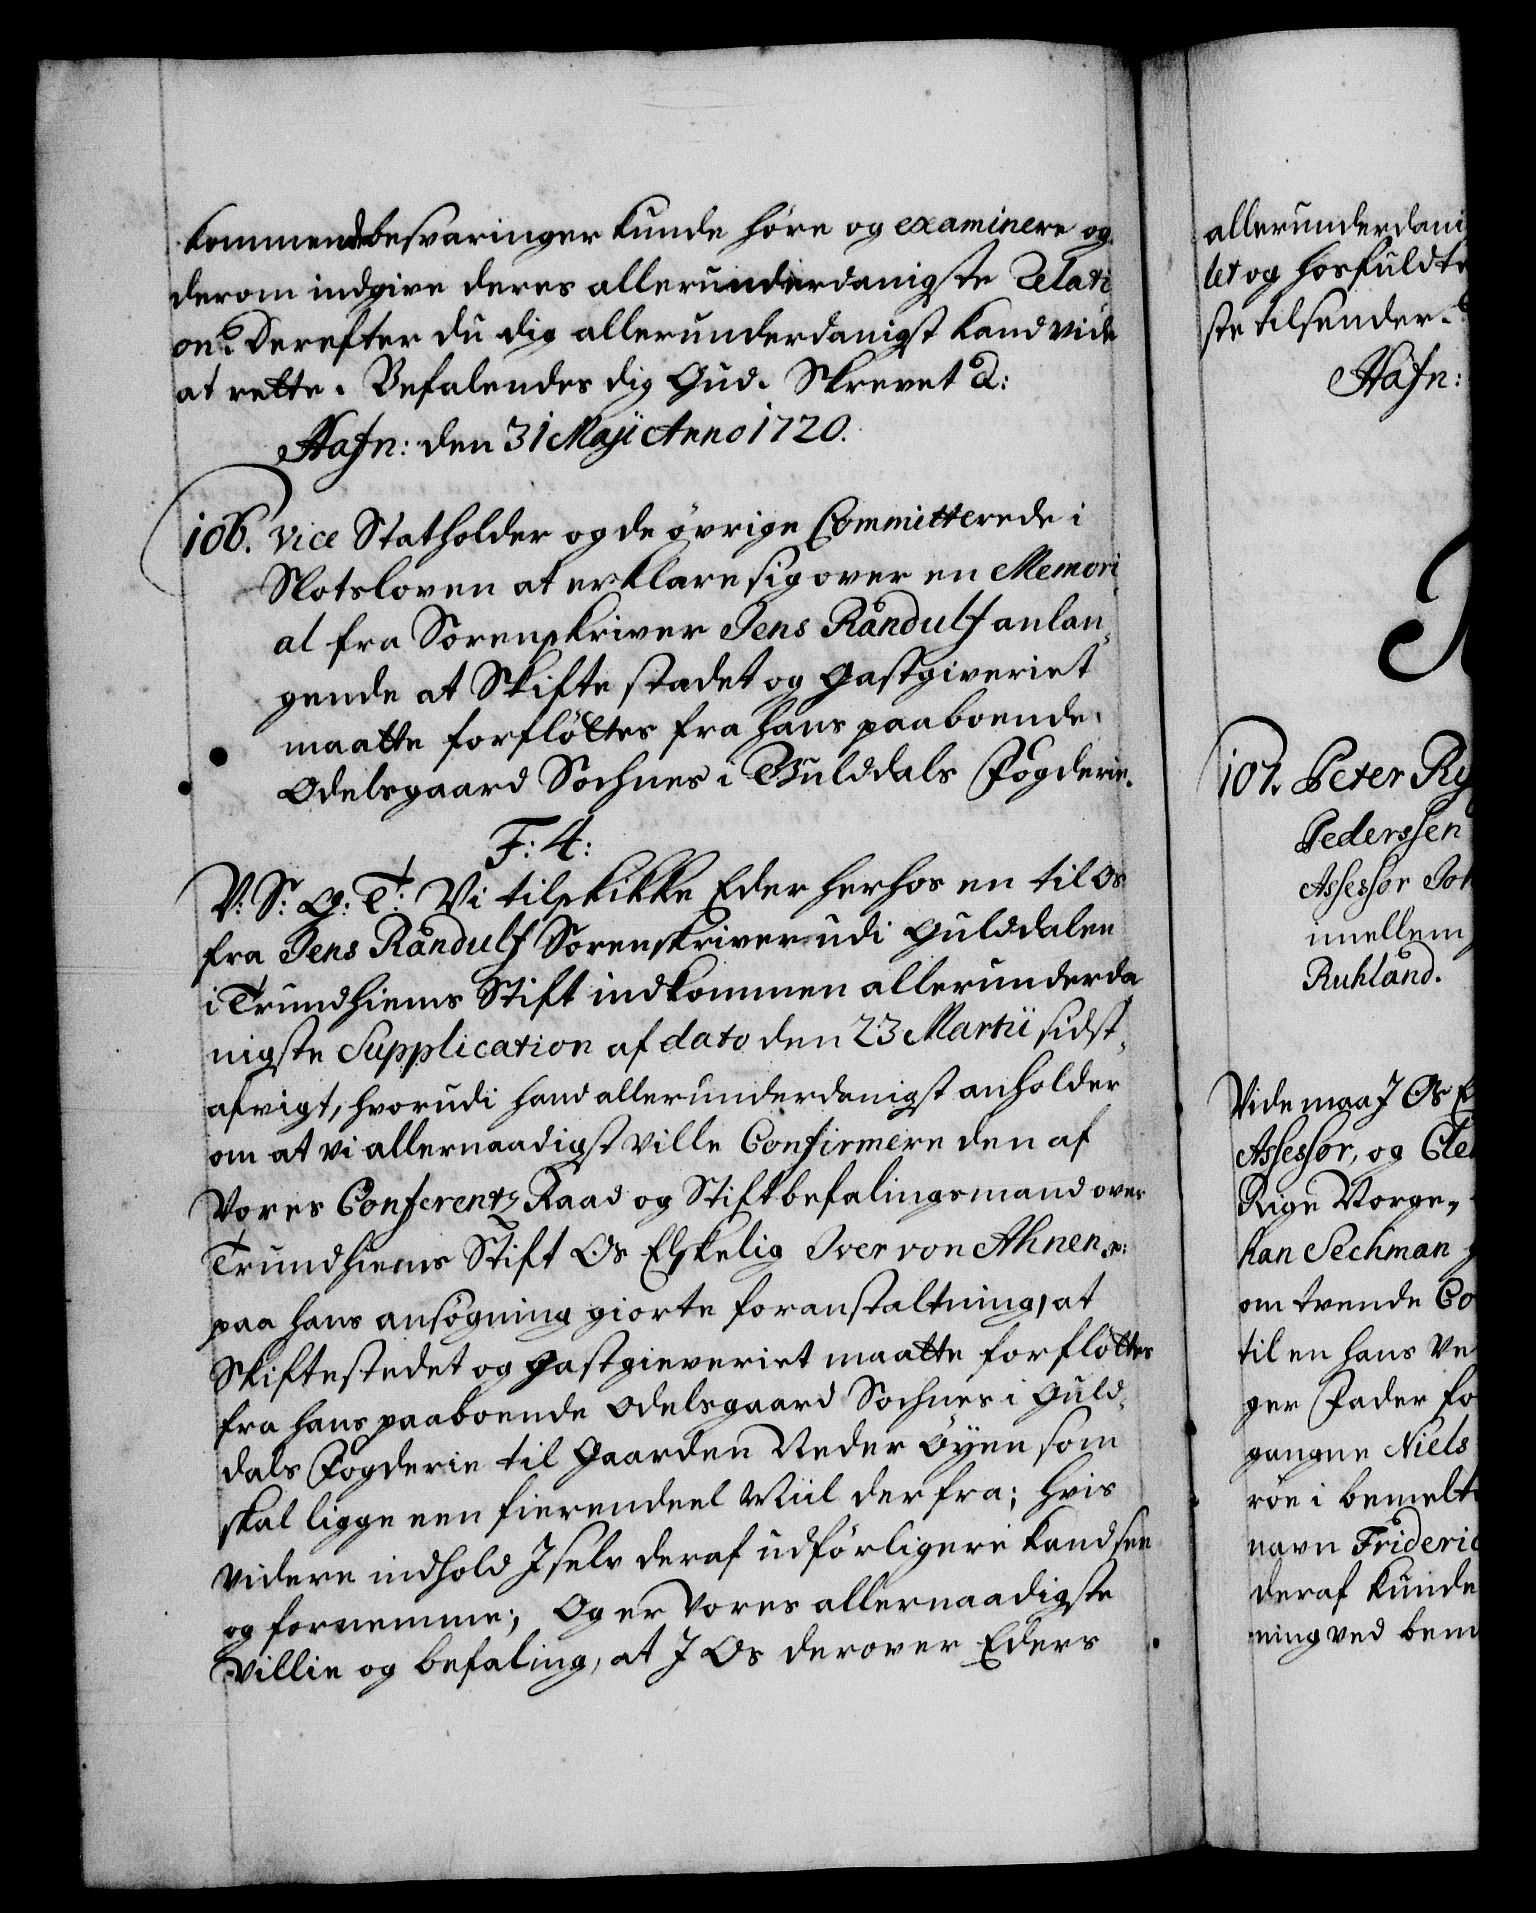 kommende besværinger kunde høre og examinere og
derom indgive deres allerunderdanigste Relati
on. Derefter du dig allerunderdanigst kand vide
at rette. Befalendes dig Gud. Skrevet &:
Hafn: den 31 Maji Anno 1720.
106. Vice Statholder og de øvrige Committerede i
Slotsloven at erklære sig over en Memori
al fra Sorenskriver Jens Randulf anlan¬
gende at Skifte stædet og Gæstgiveriet
maatte forfløttes fra hans paaboende
Odelsgaard Sochnes i Gulddals Fogderie.
F: 4:
V: S: G: T: Vi tilskikke Eder herhos en til Os
fra Jens Randulf Sorenskriver udi Gulddalen
i Trundhiems Stift indkommen allerunderda
nigste Supplication af dato den 23 Martii sidst¬
afvigt, hvorudi hand allerunderdanigst anholder
om at vi allernaadigst ville Confirmere den af
Vores Conferentz Raad og Stiftbefalingsmand over
Trundhiems Stift Os Elskelig Iver von Ahnen
paa hans ansøgning giorte foranstaltning, at
Skiftestedet og Gæstgieveriet maatte forfløttes
fra hans paaboende Odelsgaard Sochnes i Guld¬
dals Fogderie til Gaarden Neder Øyen som
skal ligge een fierendeel Miil der fra; hvis
videre indhold I selv deraf udførligere kand see
og fornemme; Og er Vores allernaadigste
Villie og befaling, at I Os derover Eders
allerunderdani
let og hosfuldte
ste tilsender.
Hafn:
107. Peter Ry
Pederssen
Assessor Joh
imellem
Ruhland.
Vide maa I Os E
Assessor, og Cle
Rige Norge,
han Sechman
om tvende Co
til en hans Ve
ger Fader fo
gangne Niels
røe i bemelt
navn Frideric
deraf kunde
ning ved bem